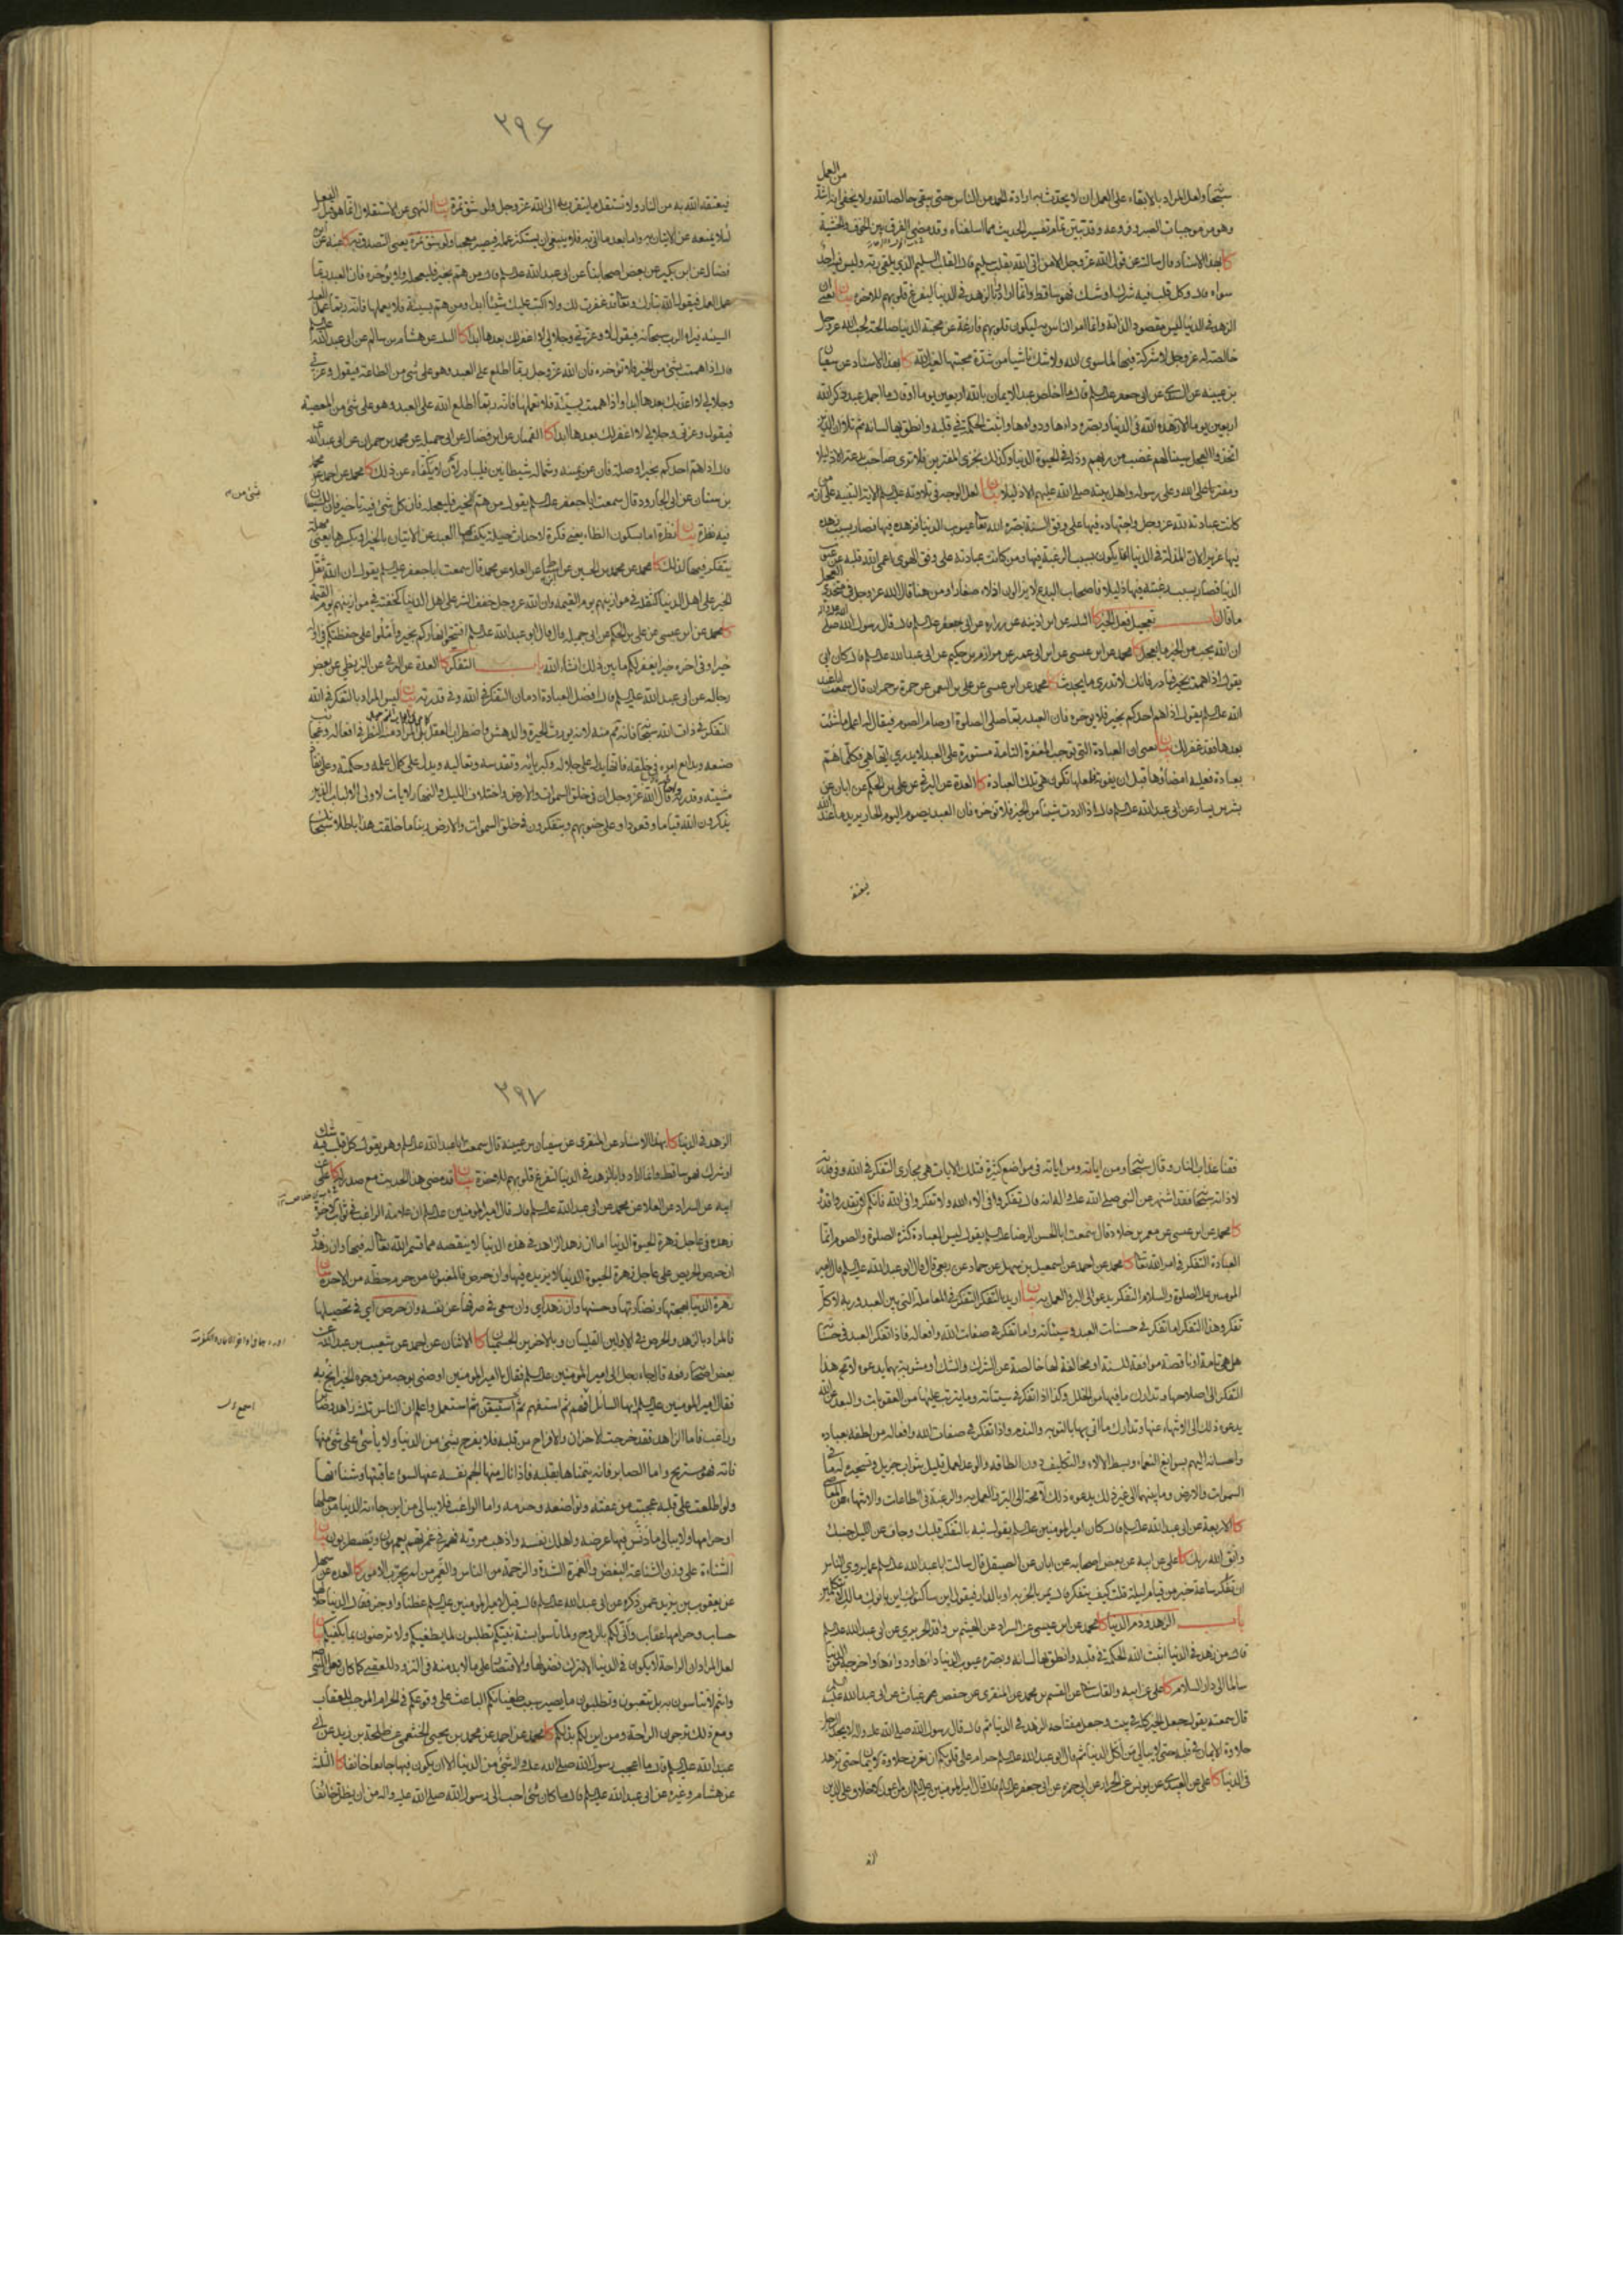 من العمل
سبحانه ولعل المراد بالابقاء على العمل ان لا يحدث به ارادة الحمد من الناس حتى يبقى خالصا لله ولا يخفى انه اشد
وهو من موجبات الصبر وفروعه وقد تبين تمام تفسير الحديث مما اسلفناه وقد مضى الفرق بين الخوف والخشية
كا بهذا الاسناد قال سالته عن قول الله عز وجل الا من اتى الله بقلب سليم قال القلب السليم الذي يلقى ربه وليس فيه احد
سواه قال وكل قلب فيه شرك او شك فهو ساقط وانما ارادوا بالزهد في الدنيا لتفرغ قلوبهم للاخرة بيان يعني ان
الزهد في الدنيا ليس مقصودا لذاته وانما امر الناس به ليكون قلوبهم فارغة عن محبة الدنيا صالحة لحب الله عز وجل
خالصة له عز وجل لا شركة فيها لما سوى الله ولا شك ناشيا من شدة محبتها لغير الله كا بهذا الاسناد عن سفيان
بن عيينه عن السندي عن ابي جعفر عليه السلم قال ما اخلص عبد الايمان بالله اربعين يوما او قال ما اجمل عبد ذكر الله
اربعين يوما الا زهده الله في الدنيا وبصره داءها ودواءها واثبت الحكمة في قلبه وانطق بها لسانه ثم تلا ان الذين
اتخذوا العجل سينالهم غضب من ربهم وذلة في الحيوة الدنيا وكذلك نجزي المفترين فلا ترى صاحب بدعة الا ذليلا
ومفتريا على الله وعلى رسوله واهل بيته صلى الله عليهم الا ذليلا بيان لعل الوجه في تلاوته عليه السلم الاية التنبيه على ان من
كانت عبادته لله عز وجل واجتهاده فيها على وفق السنة بصره الله تعالى عيوب الدنيا فزهده فيها فصار بسبب زهده
فيها عزيزا لان المذلة في الدنيا انما يكون بسبب الرغبة فيها ومن كانت عبادته على وفق الهوى اعمى الله قلبه عن عيوب
الدنيا فصار بسبب رغبته فيها ذليلا فاصحاب البدع لا يزالون اذلاء صغارا ومن هنا قال الله عز وجل في متخذي العجل
ما قال باب تعجيل فعل الخير كا الثلثه عن ابن اذينه عن زراره عن ابي جعفر عليه السلم قال قال رسول الله صلى الله عليه وآله
ان الله يحب من الخير ما يعجل كا محمد عن ابن عيسى عن ابن ابي عمير عن مرازم بن حكيم عن ابي عبد الله عليه السلم قال كان ابي
يقول اذا هممت بخير فبادر فانك لا تدري ما يحدث كا محمد عن ابن عيسى عن علي بن النعمن عن حمزة بن حمران قال سمعت ابا عبد
الله عليه السلم يقول اذا هم احدكم بخير فلا يؤخره فان العبد ربما صلى الصلوة او صام الصوم فيقال له اعمل ما شئت
بعدها فقد غفر لك بيان يعني ان العبادة التي توجب المغفرة التامة مستورة على العبد لا يدري ايها هي فكلما هم
بعبادة فعليه امضاؤها قبل ان يفوته فلعلها تكون هي تلك العبادة كا العدة عن البرقي عن علي بن الحكم عن ابان عن
بشر بن يسار عن ابي عبد الله عليه السلم قال اذا اردت شيئا من الخير فلا تؤخره فان العبد يصوم اليوم الحار يريد ما عند الله
فيعتقه
٢٩۶
فيعتقه الله به من النار ولا تستقل ما يتقرب به الى الله عز وجل ولو شق تمرة بيان النهي عن الاستقلال انما هو قبل الفعل
لئلا يمنعه عن الاتيان به واما بعد ما اتى به فلا ينبغي ان يستكثر عمله فيصير معجبا ولو بشق تمرة يعني التصدق به كا عنه عن ابن
فضال عن ابن بكير عن بعض اصحابنا عن ابي عبد الله عليه السلم قال من هم بخير فليعجله ولا يؤخره فان العبد ربما
عمل العمل فيقول الله تبارك وتعالى قد غفرت لك ولا اكتب عليك شيئا ابدا ومن هم بسيئة فلا يعملها فانه ربما عمل العبد
السيئة فيراه الرب سبحانه فيقول لا وعزتي وجلالي لا اغفر لك بعدها ابدا كا الثلثه عن هشام بن سالم عن ابي عبد الله عليه السلم
قال اذا هممت بشيء من الخير فلا تؤخره فان الله عز وجل ربما اطلع على العبد وهو على شيء من الطاعة فيقول وعزتي
وجلالي لا اعذبك بعدها ابدا واذا هممت بسيئة فلا تعملها فانه ربما اطلع الله على العبد وهو على شيء من المعصية
فيقول وعزتي وجلالي لا اغفر لك بعدها ابدا كا القميان عن ابن فضال عن ابي جميله عن محمد بن حمران عن ابي عبد الله
قال اذا هم احدكم بخير او صلة فان عن يمينه وشماله شيطانين فليبادر لا يكفاه عن ذلك كا محمد عن احمد عن محمد
بن سنان عن ابي الجارود قال سمعت ابا جعفر عليه السلم يقول من هم بشيء من الخير فليعجله فان كل شيء فيه تاخير فان للشيطان
فيه نظرة بيان نظرة اما بسكون الظاء يعني فكرة لاحداث حيلة يكف بها العبد عن الاتيان بالخير او بكسرها يعني مهلة
يتفكر فيها لذلك كا محمد عن محمد بن الحسين عن ابن اسباط عن العلاء عن محمد قال سمعت ابا جعفر عليه السلم يقول ان الله ثقل
الخير على اهل الدنيا كثقله في موازينهم يوم القيمة وان الله عز وجل خفف الشر على اهل الدنيا كخفته في موازينهم يوم القيمة
كا محمد عن ابن عيسى عن علي بن الحكم عن ابي جميله قال قال ابو عبد الله عليه السلم افتتحوا نهاركم بخير واملوا على حفظتكم في اوله
خيرا وفي اخره خيرا يغفر لكم ما بين ذلك انشاء الله باب التفكر كا العدة عن البرقي عن البزنطي عن بعض
رجاله عن ابي عبد الله عليه السلم قال افضل العبادة ادمان التفكر في الله وفي قدرته بيان ليس المراد بالتفكر في الله
التفكر في ذات الله سبحانه فانه ممنوع منه لانه يورث الحيرة والدهش واضطراب العقل بل المراد منه النظر في افعاله وعجائب
صنعه وبدايع امره في خلقه فانها تدل على جلاله وكبريائه وتقدسه وتعاليه ويدل على كمال علمه وحكمته وعلى نفاذ
مشيته وقدرته قال الله عز وجل ان في خلق السموات والارض واختلاف الليل والنهار لايات لاولي الالباب الذين
يذكرون الله قياما وقعودا وعلى جنوبهم ويتفكرون في خلق السموات والارض ربنا ما خلقت هذا باطلا سبحانك
بشيء من
فقنا عذاب النار وقال سبحانه ومن اياته ومن اياته في مواضع كثيرة فتلك الايات هي مجاري التفكر في الله وفي قدرته
لا ذاته سبحانه فقد اشتهر عن النبي صلى الله عليه واله انه قال تفكروا في الاء الله ولا تفكروا في الله فانكم لن تقدروا قدره
كا محمد عن ابن عيسى عن معمر بن خلاد قال سمعت ابا الحسن الرضا عليه السلم يقول ليس العبادة كثرة الصلوة والصوم انما
العبادة التفكر في امر الله تعالى كا محمد عن احمد عن اسمعيل بن سهل عن حماد عن ربعي قال قال ابو عبد الله عليه السلم قال امير
المومنين عليه الصلوة والسلام التفكر يدعو الى البر والعمل به بيان اريد بالتفكر التفكر في المعاملة التي بين العبد وربه لا كل
تفكر وهذا التفكر اما تفكر في حسنات العبد وسيئاته واما تفكر في صفات الله وافعاله فاذا تفكر العبد في حسناته
هل هي تامة او ناقصة موافقة للسنة او مخالفة لها خالصة عن الشرك والشك او مشوبة بهما يدعوه لا محة هذا
التفكر الى اصلاحها وتدارك ما فيها من الخلل وكذا اذا تفكر في سيئاته وما يترتب عليها من العقوبات والبعد عن الله
يدعوه ذلك الى الانتهاء عنها وتدارك ما اتى بها بالتوبه والندم واذا تفكر في صفات الله وافعاله من لطفه بعباده
واحسانه اليهم بسوابغ النعماء وبسط الالاء والتكليف دون الطاقه والوعد لعمل قليل بثواب جزيل وتسخيره لهم ما في
السموات والارض وما بينهما الى غير ذلك يدعوه ذلك لا محة الى البر والعمل به والرغبة في الطاعات والانتهاء عن المعاصي
كا الاربعة عن ابي عبد الله عليه السلم قال كان امير المومنين عليه السلم يقول نبه بالتفكر قلبك وجاف عن الليل جنبك
واتق الله ربك كا علي عن ابيه عن بعض اصحابه عن ابان عن الصيقل قال سالت ابا عبد الله عليه السلم عما يروي الناس
ان تفكر ساعة خير من قيام ليلة قلت كيف يتفكر قال يمر بالخربه او بالدار فيقول اين ساكنوك اين بانوك مالك لا تتكلمين
باب الزهد وذم الدنيا كا محمد عن ابن عيسى عن السراد عن الهيثم بن واقد الحريري عن ابي عبد الله عليه السلم
قال من زهد في الدنيا اثبت الله الحكمة في قلبه وانطق بها لسانه وبصره عيوب الدنيا داءها ودواءها واخرجه من الدنيا
سالما الى دار السلام كا علي عن ابيه والقاساني عن القسم بن محمد عن المنقري عن حفص بن غياث عن ابي عبد الله عليه السلم
قال سمعته يقول جعل الخير كله في بيت وجعل مفتاحه الزهد في الدنيا ثم قال قال رسول الله صلى الله عليه واله لا يجد الرجل
حلاوة الايمان في قلبه حتى لا يبالي من اكل الدنيا ثم قال ابو عبد الله عليه السلم حرام على قلوبكم ان تعرف حلاوة الايمان حتى تزهد
في الدنيا كا علي عن العبيدي عن يونس عن الخراز عن ابي حمزه عن ابي جعفر عليه السلم قال قال امير المومنين عليه السلم ان من اعون الاخلاق على الدين
الزهد
٢٩٧
الزهد في الدنيا كا بهذا الاسناد عن المنقري عن سفيان بن عيينة قال سمعت ابا عبد الله عليه السلم وهو يقول كل قلب فيه شك
او شرك فهو ساقط وانما ارادوا بالزهد في الدنيا لتفرغ قلوبهم للاخرة بيان قد مضى هذا الحديث مع صدره كا علي عن
ابيه عن السراد عن العلاء عن محمد عن ابي عبد الله عليه السلم قال قال امير المومنين عليه السلم ان علامة الراغب في ثواب الاخرة
زهده في عاجل زهرة الحيوة الدنيا اما ان زهد الزاهد في هذه الدنيا لا ينقصه مما قسم الله تعالى له فيها وان زهد و
ان حرص الحريص على عاجل زهرة الحيوة الدنيا لا يزيده فيها وان حرص فالمغبون من حرم حظه من الاخرة بيان
زهرة الدنيا بهجتها ونضارتها وحسنها وان زهد اي وان سعى في صرفها عن نفسه وان حرص اي في تحصيلها
فالمراد بالزهد والحرص في الاولين القلبيان وبالاخرين الجسميان كا الاثنان عن احمد عن شعيب بن عبد الله عن
بعض اصحابه رفعه قال جاء رجل الى امير المومنين عليه السلم فقال يا امير المومنين اوصني بوجه من وجوه الخير انج به
فقال امير المومنين عليه السلم ايها السائل افهم ثم استفهم ثم استيقن ثم استعمل واعلم ان الناس ثلثه زاهد وصابر
وراغب فاما الزاهد فقد خرجت الاحزان والافراح من قلبه فلا يفرح بشيء من الدنيا ولا ياسى على شيء منها
فاته فهو مستريح واما الصابر فانه يتمناها بقلبه فاذا نال منها الجم نفسه عنها لسوء عاقبتها وشنائتها
ولو اطلعت على قلبه عجبت من عفته وتواضعه وحزمه واما الراغب فلا يبالي من اين جاءته الدنيا من حلها
او حرامها ولا يبالي ما دنس فيها عرضه واهلك نفسه واذهب مروته فهم في غمرتهم يعمهون ويضطربون بيان
الشناءة على وزن الشناعة البغض والغمرة الشدة والزحمة من الناس والغمر من لم يجرب الامور كا العدة عن سهل
عن يعقوب بن يزيد عمن ذكره عن ابي عبد الله عليه السلم قال قيل لامير المومنين عليه السلم عظنا واوجز فقال الدنيا حلالها
حساب وحرامها عقاب وانى لكم بالروح ولما تاسوا بسنة نبيكم تطلبون ما يطغيكم ولا ترضون بما يكفيكم بيان
لعل المراد ان الراحة لا يكون في الدنيا الا بترك فضولها والاقتصار على ما لا بد منه في التزود للعقبى كما كان فعل النبي
وانتم لا تتاسون به بل تتعبون وتطلبون ما يصير سبب طغيانكم الباعث على وقوعكم في الحرام الموجب للعقاب
ومع ذلك ترجون الراحة ومن اين لكم بذلك كا محمد عن احمد عن محمد بن يحيى الخثعمي عن طلحة بن زيد عن ابي
عبد الله عليه السلم قال ما اعجب رسول الله صلى الله عليه واله شيء من الدنيا الا ان يكون فيها جائعا خائفا كا الثلثه
عن هشام وغيره عن ابي عبد الله عليه السلم قال ما كان شيء احب الى رسول الله صلى الله عليه واله من ان يظل خائفا